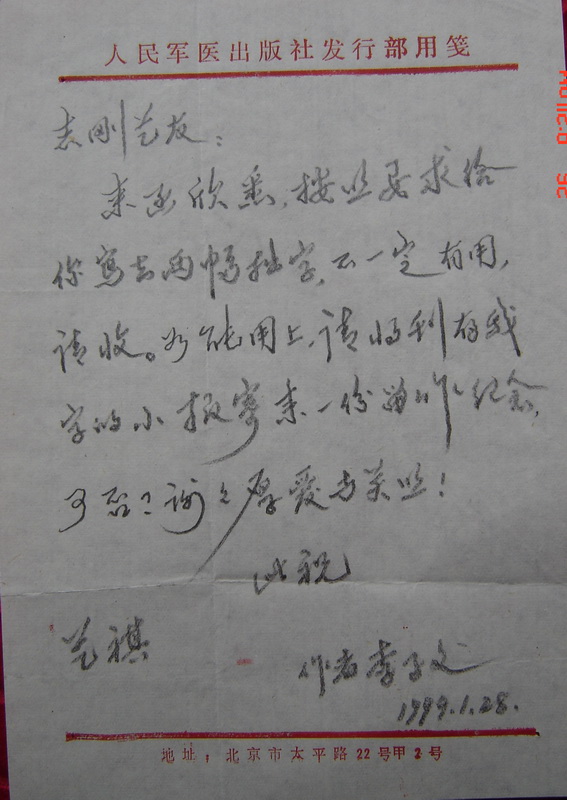 人民军医出版社发行部用笺
志刚艺友：
来函欣悉，按照要求给
你写去两幅拙字，不一定有用，
请收。如能用上，请将刊有我
字的小报寄来一份留作纪念，
可否？谢谢厚爱与关照！
此祝
艺祺
作者李子文
1999.1.28.
地址：北京市太平路22号甲2号